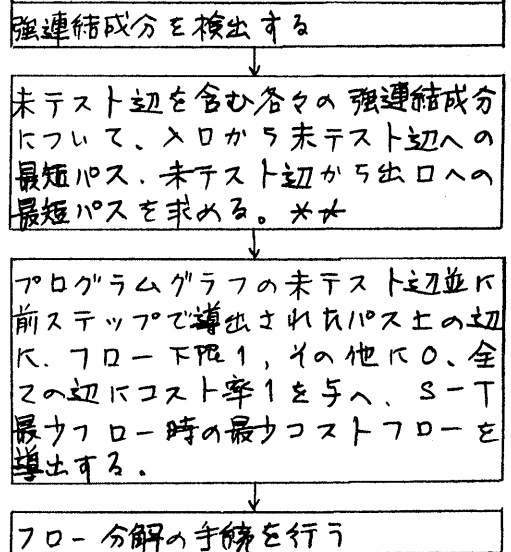 強連結成分を検出する
未テスト辺を含む各々の強連結成分
について、入口から未テスト辺への
最短パス、未テスト辺から出口への
最短パスを求める。**
プログラムグラフの未テスト辺並に
前ステップで導出されたパス上の辺
に、フロー下限1,その他に0、全
ての辺にコスト率1を与へ、S-T
最少フロー時の最少コストフローを
導出する.
フロー分解の手続を行う